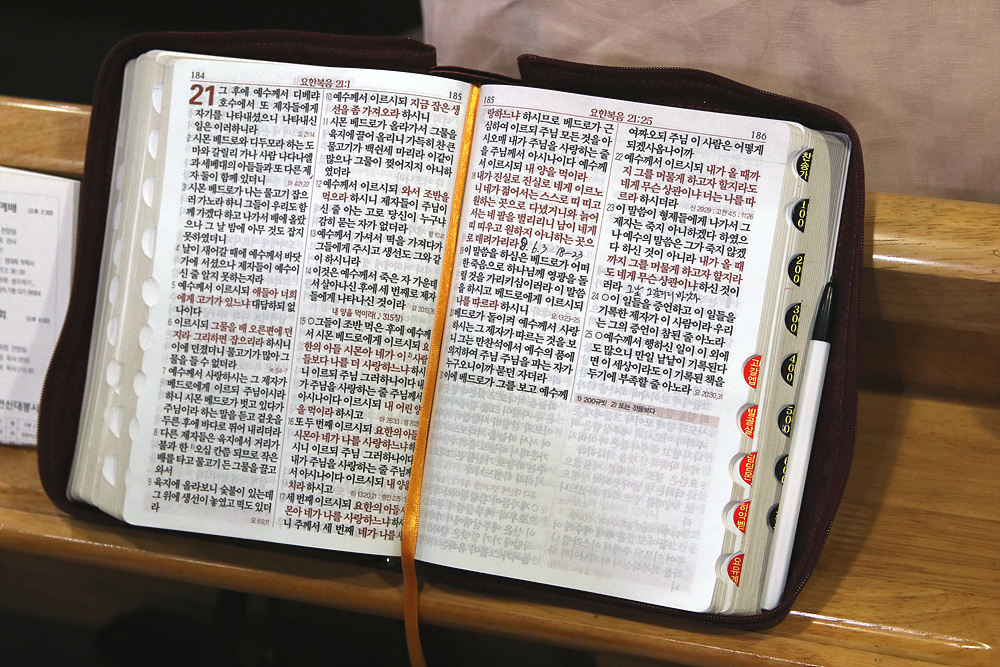 184
요한복음 21:1
185
21 그 후에 예수께서 디베랴
호수에서 또 제자들에게
자기를 나타내셨으니 나타내신
일은 이러하니라
2 시몬 베드로와 디두모라 하는 도
마와 갈릴리 가나 사람 나다나엘
과 세베대의 아들들과 또 다른 제
자 둘이 함께 있더니
3 시몬 베드로가 나는 물고기 잡으
러 가노라 하니 그들이 우리도 함
께 가겠다 하고 나가서 배에 올랐
으나 그 날 밤에 아무 것도 잡지
못하였더니
4 날이 새어갈 때에 예수께서 바닷
가에 서셨으나 제자들이 예수이
신 줄 알지 못하는지라
5 예수께서 이르시되 얘들아 너희
에게 고기가 있느냐 대답하되 없
나이다
6 이르시되 그물을 배 오른편에 던
지라 그리하면 잡으리라 하시니
이에 던졌더니 물고기가 많아 그
물을 들 수 없더라
7 예수께서 사랑하시는 그 제자가
베드로에게 이르되 주님이시라
하니 시몬 베드로가 벗고 있다가
주님이라 하는 말을 듣고 겉옷을
두른 후에 바다로 뛰어 내리더라
8 다른 제자들은 육지에서 거리가
불과 한 오십 칸쯤 되므로 작은
배를 타고 물고기 든 그물을 끌고
와서
9 육지에 올라보니 숯불이 있는데
그 위에 생선이 놓였고 떡도 있더
라
10 예수께서 이르시되 지금 잡은 생
선을 좀 가져오라 하시니
11 시몬 베드로가 올라가서 그물을
육지에 끌어 올리니 가득히 찬 큰
물고기가 백쉰세 마리라 이같이
많으나 그물이 찢어지지 아니하
였더라
12 예수께서 이르시되 와서 조반을
먹으라 하시니 제자들이 주님이
신 줄 아는 고로 당신이 누구냐
감히 묻는 자가 없더라
13 예수께서 가셔서 떡을 가져다가
그들에게 주시고 생선도 그와 같
이 하시니라
14 이것은 예수께서 죽은 자 가운데
서 살아나신 후에 세 번째로 제자
들에게 나타나신 것이라
내 양을 먹이라
15 그들이 조반 먹은 후에 예수께
서 시몬 베드로에게 이르시되 요
한의 아들 시몬아 네가 이 사람
들보다 나를 더 사랑하느냐 하시
니 이르되 주님 그러하나이다 내
가 주님을 사랑하는 줄 주님께서
아시나이다 이르시되 내 어린 양
을 먹이라 하시고
16 또 두 번째 이르시되 요한의 아들
시몬아 네가 나를 사랑하느냐 하
시니 이르되 주님 그러하나이다
내가 주님을 사랑하는 줄 주님께
서 아시나이다 이르시되 내 양을
치라 하시고
17 세 번째 이르시되 요한의 아들 시
몬아 네가 나를 사랑하느냐 하시
니 주께서 세 번째 네가 나를 사
185
요한복음 21:25
186
랑하느냐 하시므로 베드로가 근
심하여 이르되 주님 모든 것을 아
시오매 내가 주님을 사랑하는 줄
을 주님께서 아시나이다 예수께
서 이르시되 내 양을 먹이라
내가 진실로 진실로 네게 이르노
니 네가 젊어서는 스스로 띠 띠고
원하는 곳으로 다녔거니와 늙어
서는 네 팔을 벌리리니 남이 네게
띠 띠우고 원하지 아니하는 곳으
로 데려가리라
이 말씀을 하심은 베드로가 어떠
한 죽음으로 하나님께 영광을 돌
릴 것을 가리키심이러라 이 말씀
을 하시고 베드로에게 이르시되
나를 따르라 하시니
베드로가 돌이켜 예수께서 사랑
하시는 그 제자가 따르는 것을 보
니 그는 만찬석에서 예수의 품에
의지하여 주님 주님을 파는 자가
누구오니이까 묻던 자더라
이에 베드로가 그를 보고 예수께
여짜오되 주님 이 사람은 어떻게
되겠사옵나이까
22 예수께서 이르시되 내가 올 때까
지 그를 머물게 하고자 할지라도
네게 무슨 상관이냐 너는 나를 따
르라 하시더라
23 이 말씀이 형제들에게 나가서 그
제자는 죽지 아니하겠다 하였으
나 예수의 말씀은 그가 죽지 않겠
다 하신 것이 아니라 내가 올 때
까지 그를 머물게 하고자 할지라
도 네게 무슨 상관이냐 하신 것이
러라
24 이 일들을 증언하고 이 일들을
기록한 제자가 이 사람이라 우리
는 그의 증언이 참된 줄 아노라
25 예수께서 행하신 일이 이 외에
도 많으니 만일 낱낱이 기록된다
면 이 세상이라도 이 기록된 책을
두기에 부족할 줄 아노라
1) 200규빗 2) 또는 것들보다
찬송가
100
200
300
400
500
600